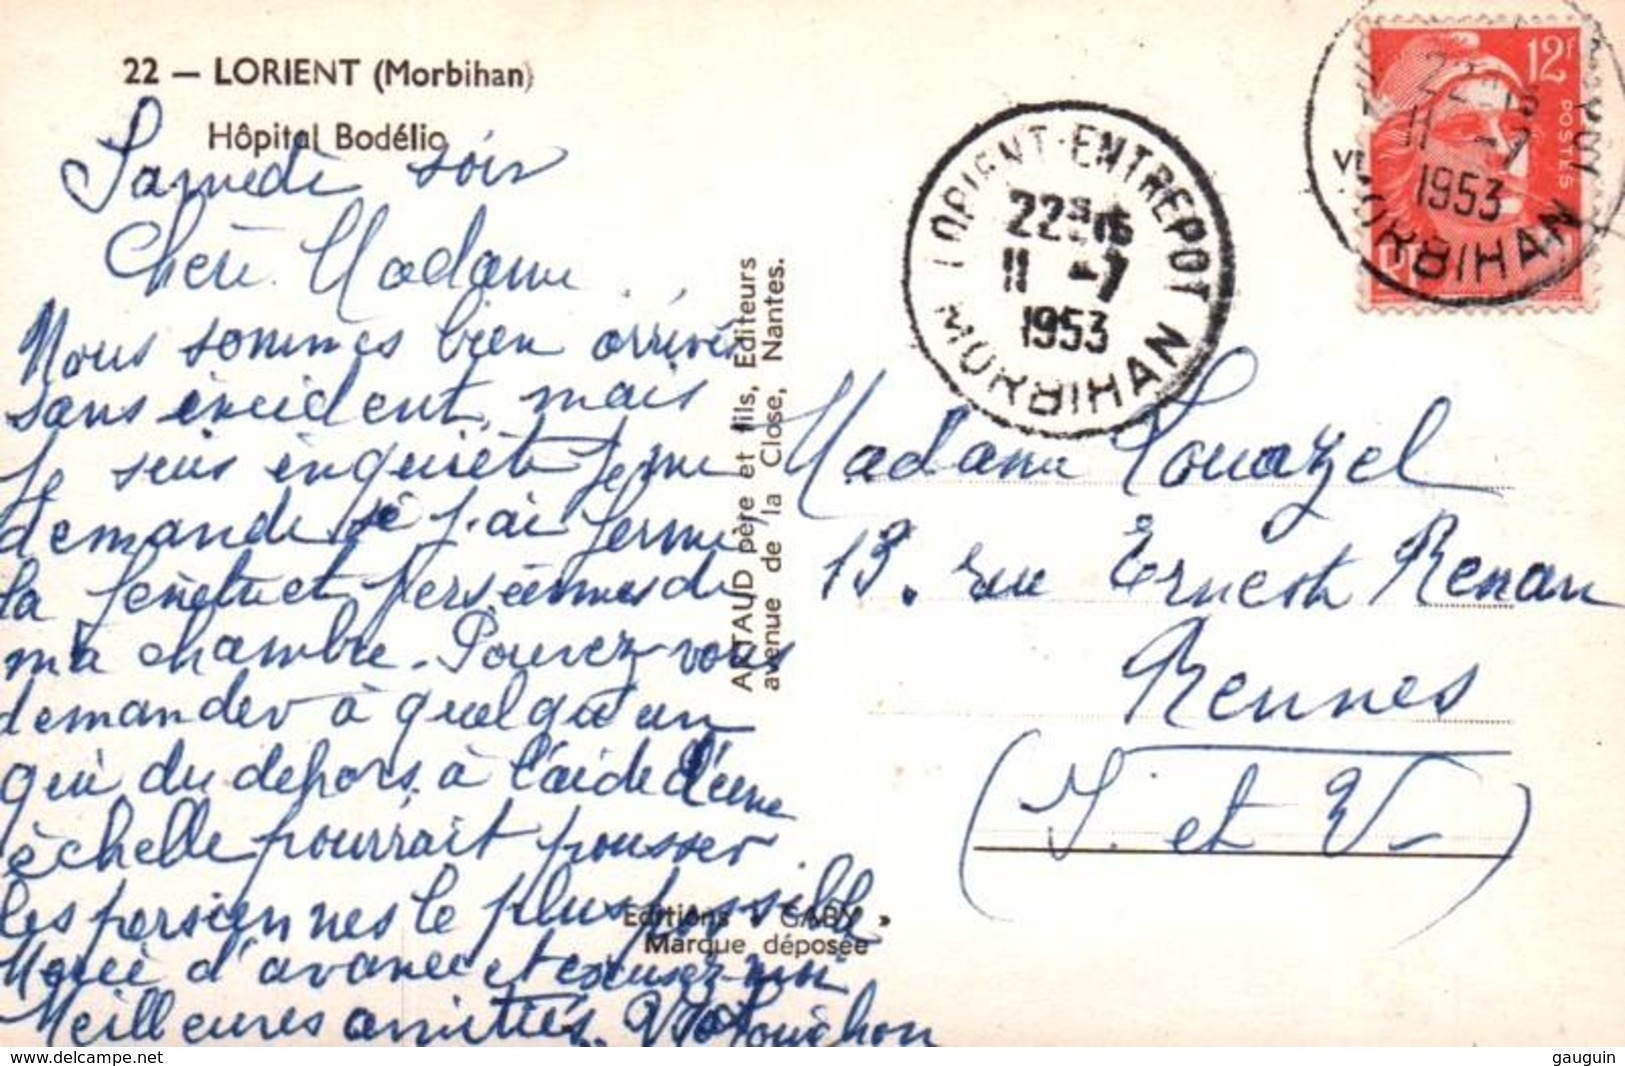 22 — LORIENT (Morbihan)
Hôpital Bodélio
Samedi soir
Chère Madame
Nous sommes bien arrivés
sans incident, mais
je suis inquiète je me
demande si j'ai fermé
la fenêtre et persiennes de
ma chambre. Pouvez-vous
demander à quelqu'un
qui du dehors, à l'aide d'une
échelle pourrait pousser
les persiennes le plus possible
Merci d'avance et excusez-moi
Meilleures amitiés.
ARTAUD père et fils, Editeurs
avenue de la Close, Nantes.
Editions « GABY »
Marque déposée
LORIENT-ENTREPOT
22H15
11 -7
1953
MORBIHAN
12F
POSTES
22H15
11 -7
1953
MORBIHAN
Madame Louazel
13. rue Ernest Renan
Rennes
(I. et V.)
gauguin
www.delcampe.net